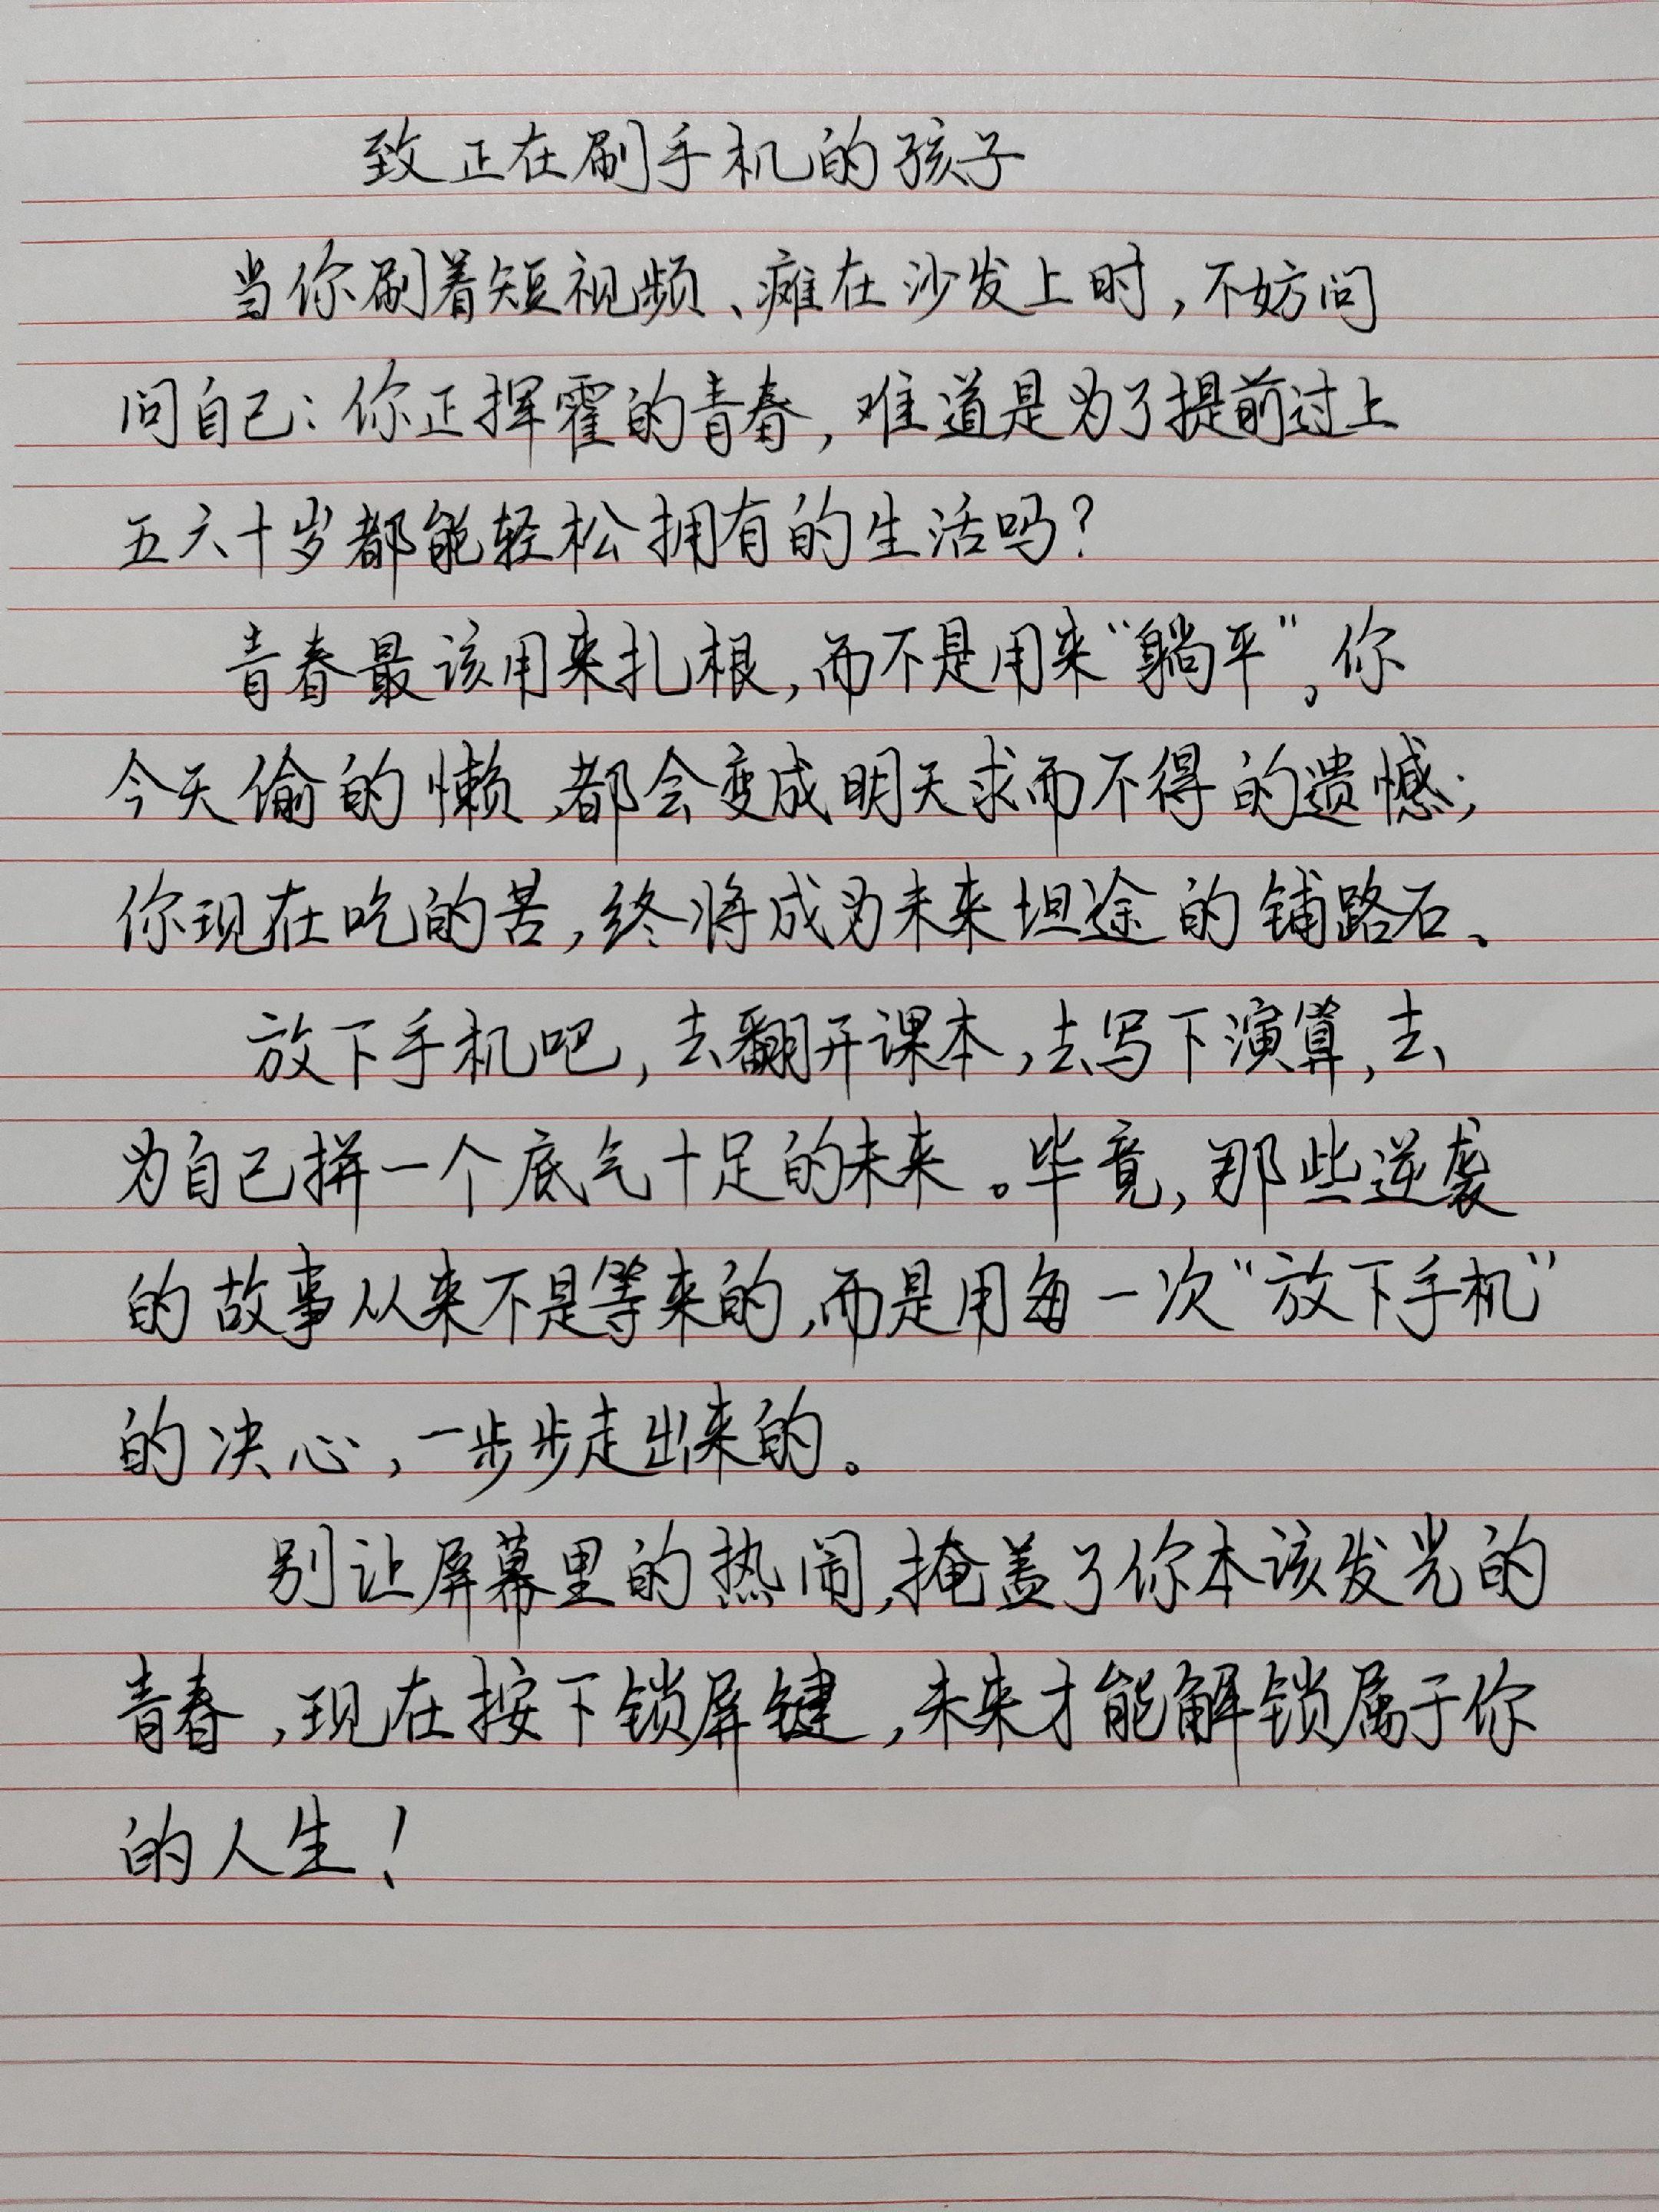 致正在刷手机的孩子
当你刷着短视频、瘫在沙发上时，不妨问
问自己：你正挥霍的青春，难道是为了提前过上
五六十岁都能轻松拥有的生活吗？
青春最该用来扎根，而不是用来“躺平”，你
今天偷的懒，都会变成明天求而不得的遗憾；
你现在吃的苦，终将成为未来坦途的铺路石。
放下手机吧，去翻开课本，去写下演算，去
为自己拼一个底气十足的未来。毕竟，那些逆袭
的故事从来不是等来的，而是用每一次“放下手机”
的决心，一步步走出来的。
别让屏幕里的热闹，掩盖了你本该发光的
青春，现在按下锁屏键，未来才能解锁属于你
的人生！